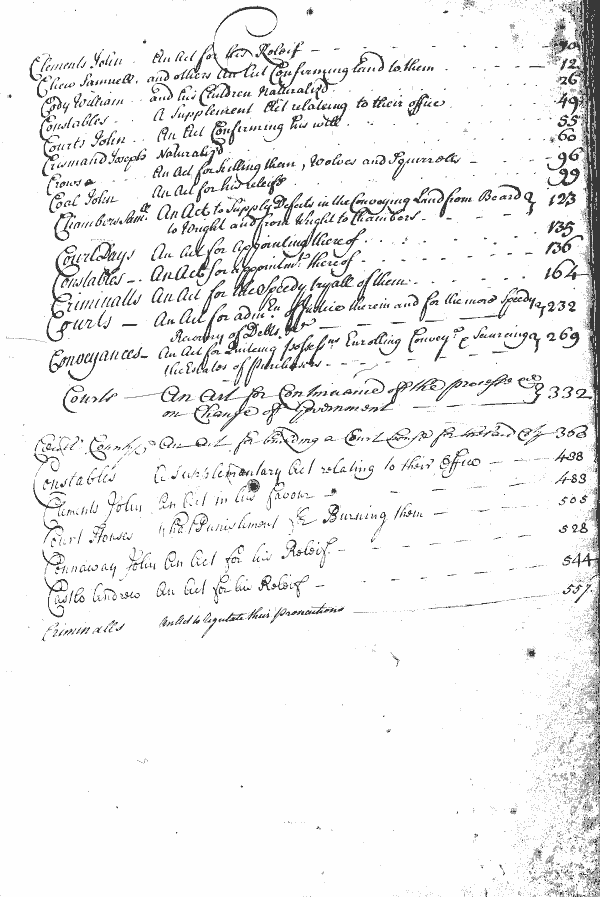 Clements John - An Act for his Releif - - 90
Chew Samuell. and others An Act Confirming Land to them - 12
Cody William - and his Children Naturaliz'd 26
Constables - A Supplement Act relateing to their office 49
Courts John - An Act Confirming his will 55
Crismand Joseph Naturaliz'd 60
Crows & An Act for killing them, Wolves and Squirrells - 96
Coal John An Act for his releife 99
Chambers Sam:ll An Act to Supply Defects in the Conveying Land from Board } 123
to Wught and from Wught to Chambers -
Court Days An Act for Appointing thereof 135
Constables - An Act for appointm:t thereof 136
Criminalls An Act for the Speedy tryall of them 164
Courts - An Act for adm:en of Justice therein and for the more Speedy } 232
Recovery of Debts &c
Conveyances - An Act for Enrolling Convey:s & Secureing } 269
the Estates of Purchasers -
Courts - An Act for Continuance of the processe &c } 332
on Change of Government
County An act for building a Court house for 366
Constables A Supplementary Act relating to their Office - 488
Clements John An Act in his favour - 488
Court Houses what Punishment for Burning them - 505
Connaway John An Act for his Releif - 528
Castle Andrew An Act for his Releif - 544
Criminalls An Act to regulate their 557